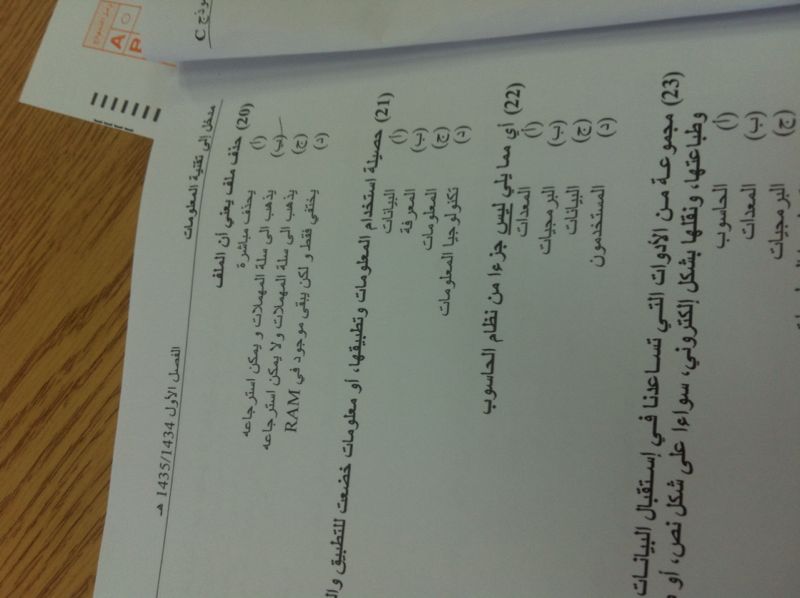 نموذج C
A
P
مدخل إلى تقنية المعلومات
الفصل الأول 1435/1434 هـ
(20) حذف ملف يعني أن الملف
(أ) يحذف مباشرة
(ب) يذهب الى سلة المهملات و يمكن استرجاعه
(ج) يذهب الى سلة المهملات ولا يمكن استرجاعه
(د) يختفي فقط و لكن يبقى موجود في RAM
(21) حصيلة استخدام المعلومات وتطبيقها، أو معلومات خضعت للتطبيق
(أ) البيانات
(ب) المعرفة
(ج) المعلومات
(د) تكنولوجيا المعلومات
(22) أي مما يلي ليس جزءا من نظام الحاسوب
(أ) المعدات
(ب) البرمجيات
(ج) البيانات
(د) المستخدمون
(23) مجموعة من الأدوات التي تساعدنا في إستقبال البيانات
وطباعتها، ونقلها بشكل إلكتروني، سواءا على شكل نص، أو
(أ) الحاسوب
(ب) المعدات
(ج) البرمجيات